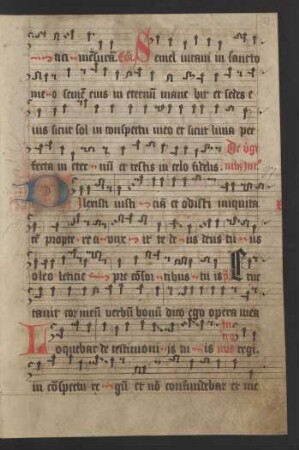 dici mesurā. Semel iuravi in sancto
meo semē eius in eternū manebit et sedes e
ius sicut sol in conspectu meo et sicut luna per
fecta in eternū et testis in celo fidelis.
Dilexisti iusticiā et odisti iniquita
tē propterea vnxit te deus deus tuus
oleo leticie pre cōsortibus tuis Eruc
tauit cor meū verbū bonū dico ego opera mea
Loquebar de testimoniis tuis
in cōspectu regū et nō confundebar et me